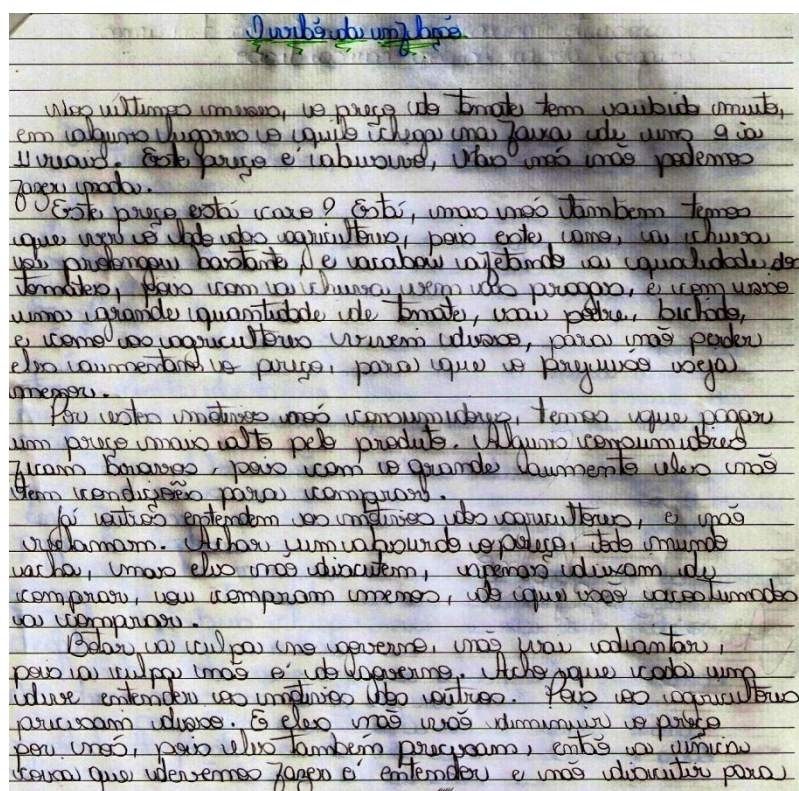 O vilão da inflação
Nos últimos meses, o preço do tomate tem subido muito,
em alguns lugares o quilo chega na faixa de uns 9 a
11 reais. Este preço é abusivo, Mas nós não podemos
fazer nada.
Este preço está caro? Está, mas nós também temos
que ver o lado dos agricultores, pois este ano, a chuva
se prolongou bastante, e acabou afetando a qualidade do
tomates, pois com a chuva vem as pragas, e com isso
uma grande quantidade de tomate, sai pôdre, bichado,
e como os agricultores vivem disso, para não perder
eles aumentam o preço, para que o prejuízo seja
menor.
Por estes motivos nós consumidores, temos que pagar
um preço mais alto pelo produto. Alguns consumidores
ficam bravos, pois com o grande aumento eles não
tem condições para comprar.
Já outros entendem os motivos dos agricultores, e não
reclamam. Achar um absurdo o preço, todo mundo
acha, mas eles não discutem, apenas deixam de
comprar, ou compram menos, do que são acostumados
a comprar.
Botar a culpa no governo, não vai adiantar,
pois a culpa não é do governo. Acho que cada um
deve entender os motivos dos outros. Pois os agricultores
precisam disso. E eles não vão diminuir o preço
por nós, pois eles também precisam, então a única
coisa que devemos fazer é entender e não discutir para